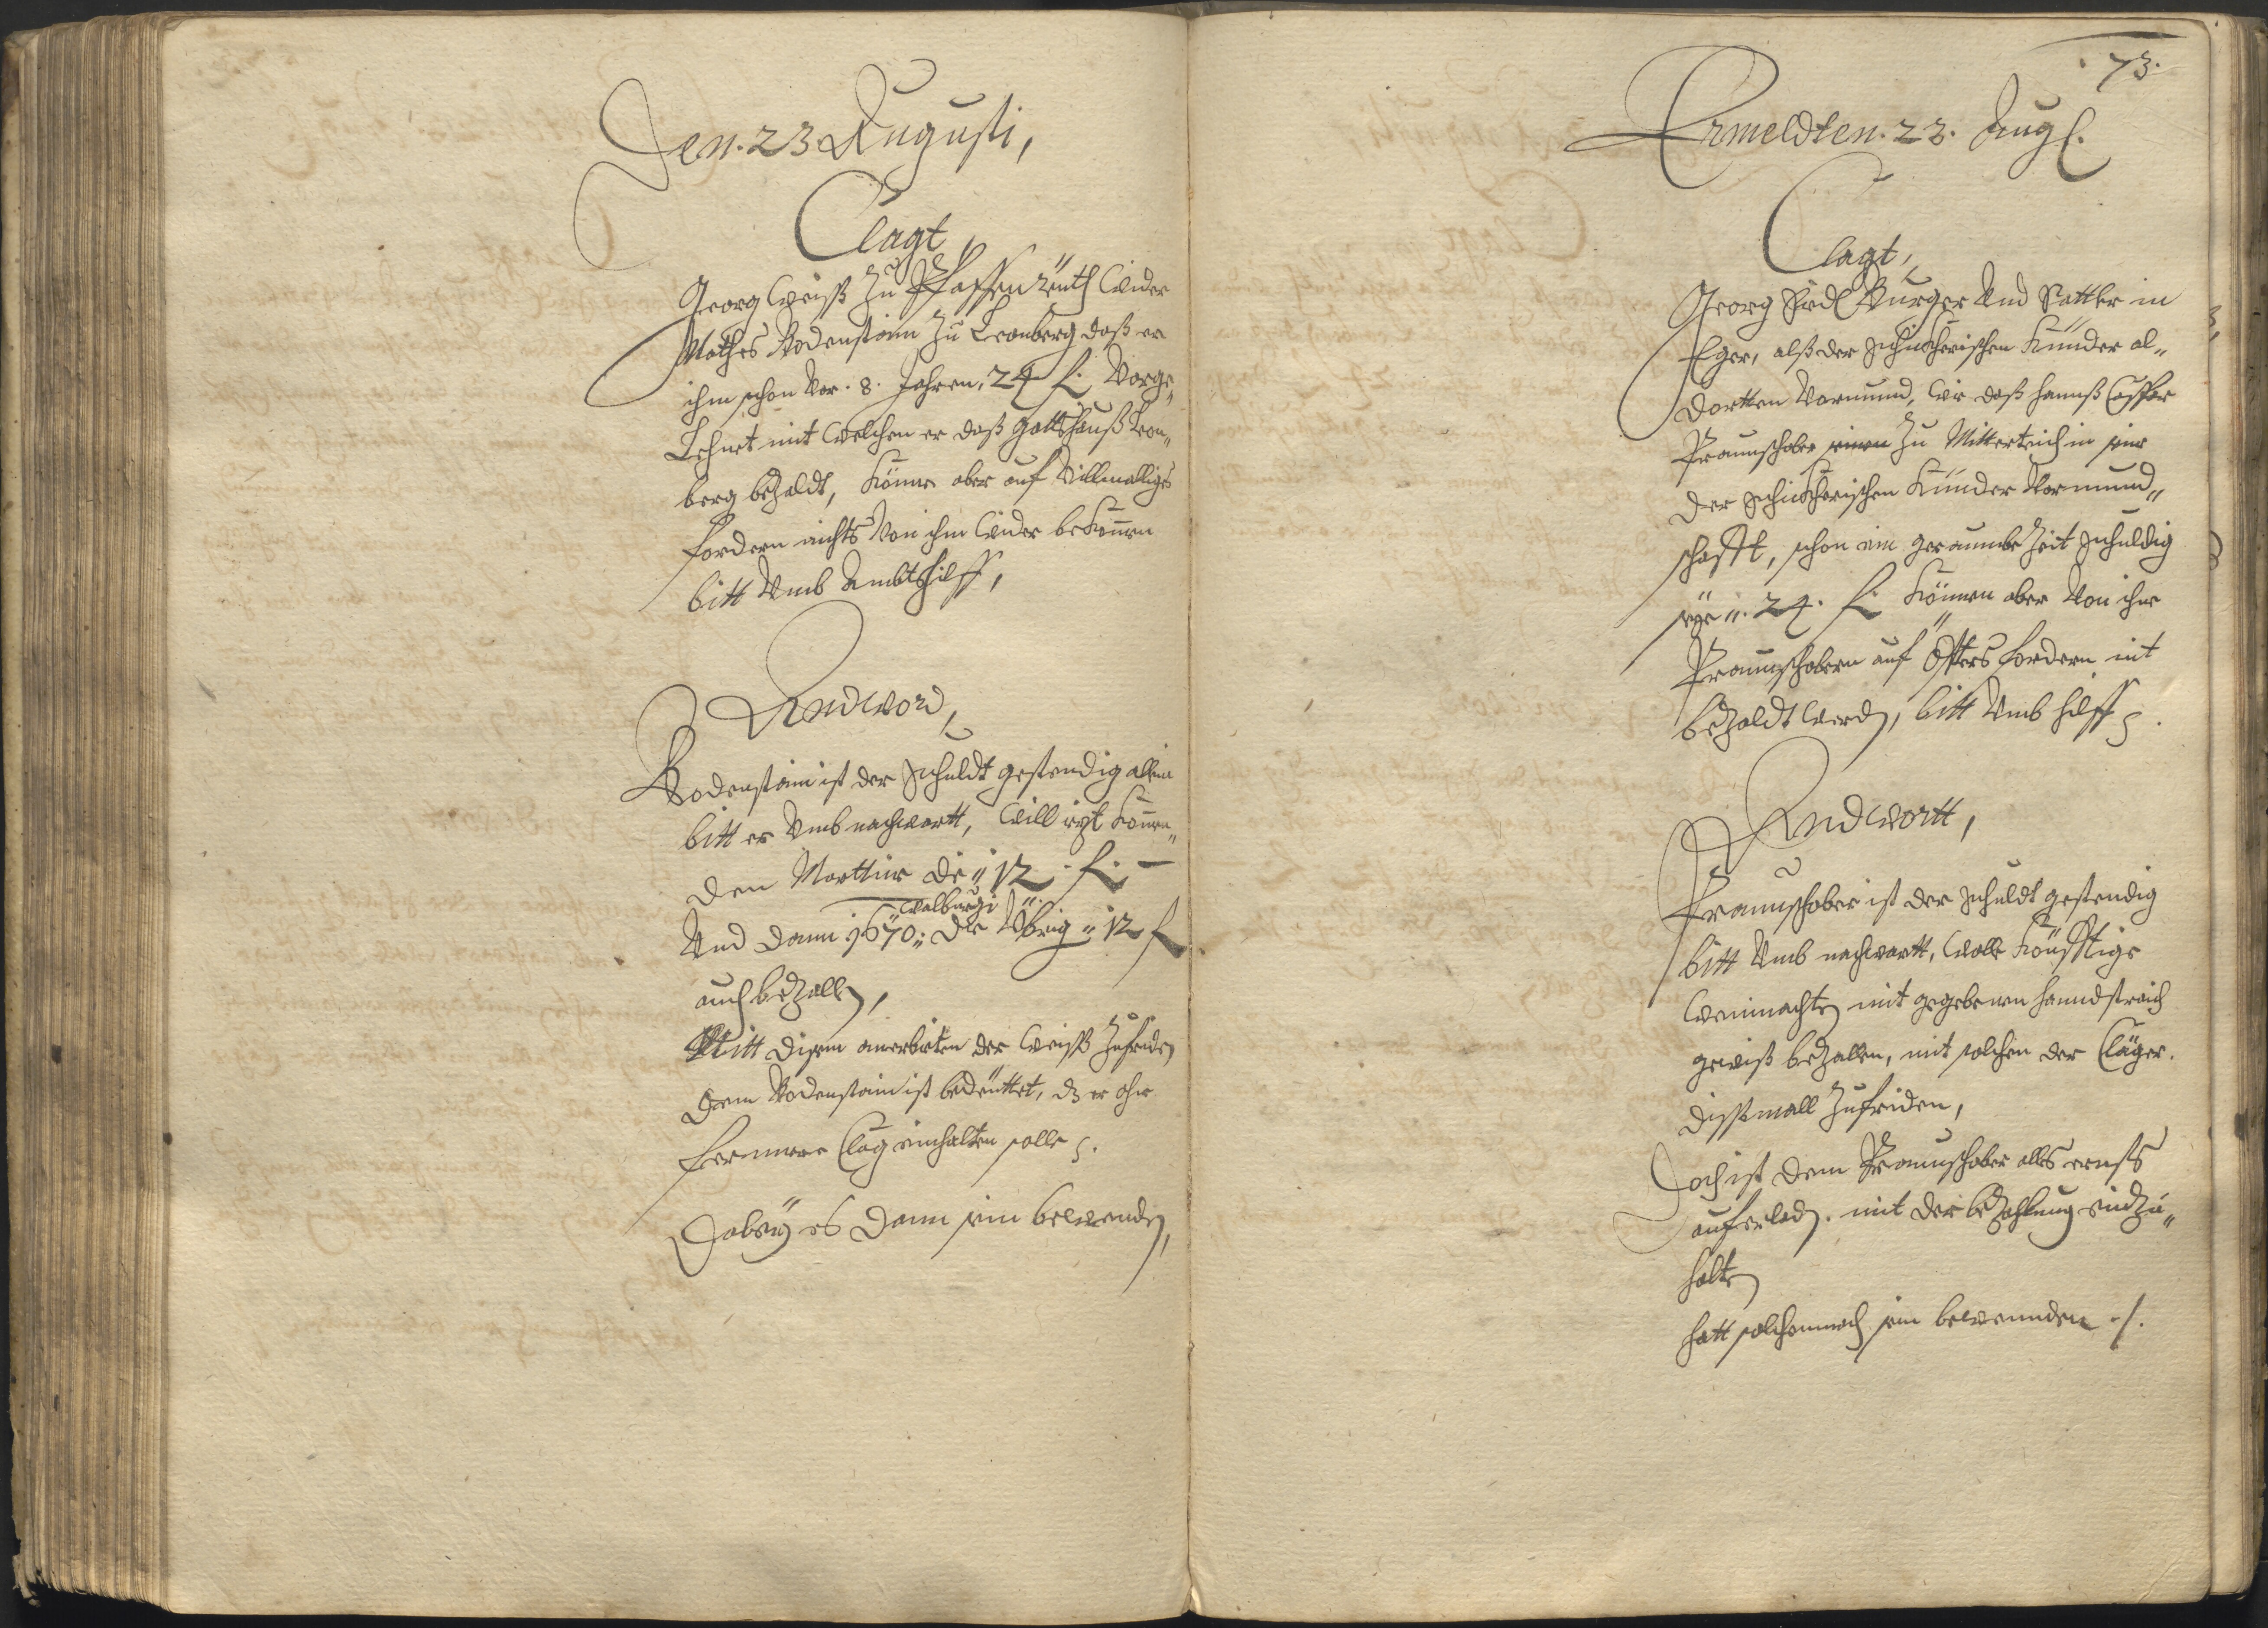 Den. 23 Augusti,
Clagt
Georg Weiß zu Pfaffenreuth wider
Mathes Bodenstain zu Leonberg daß er
ihm schon vor. 8. Jahren, 24 fl. Vorge„
Lehnet mit welchen er daß Gottshauß Leon„
berg bezaldt, könne aber auf villmalliges
fordern nichts von ihm wider bekommen
bitt umb Ambtshilff,
Andword,
Bodenstain ist der Schuldt gestendig allein
bitt er umb nachwartt, will iezt komen„
den Marttini die „ 12 . fl. —
walburgi
Und dann 1670 „ die Übrig „ 12 fl
auch bezallen,
Mitt disem anerbieten der Weiß zufriden
Dem Bodenstain ist bedeuttet, dz er ohne
fernnere Clag einhalten solle
Dabey es dann sein bewenden,
73.
Ermeldten. 23. Aug.
Clagt,
Georg Burger und Sattler in
Eger, alß der Kinder al„
dortten Vormund, wie daß Hannß Caspar
Praunschober zu Mitterteich in seiner
der Kinder Vormund„
schafft, schon ein geraumbe Zeit schuldig
seye „. 24. fl. können aber von ihme
Praunschobern auf öffters fordern nit
bezaldt werden, bitt umb hilff
Andwortt,
Praunschober ist der Schuldt gestendig
bitt umb nachwartt, wolle könfftige
Weinnachten mit gegebenen handstraich
gewiß bezallen, mit solchen der Cläger.
dißmall zufriden,
Doch ist dem Praunschober alles ernsts
auferladen. mit der bezahlung einzu„
halten
hatt solchemnach sein bewennden ./.